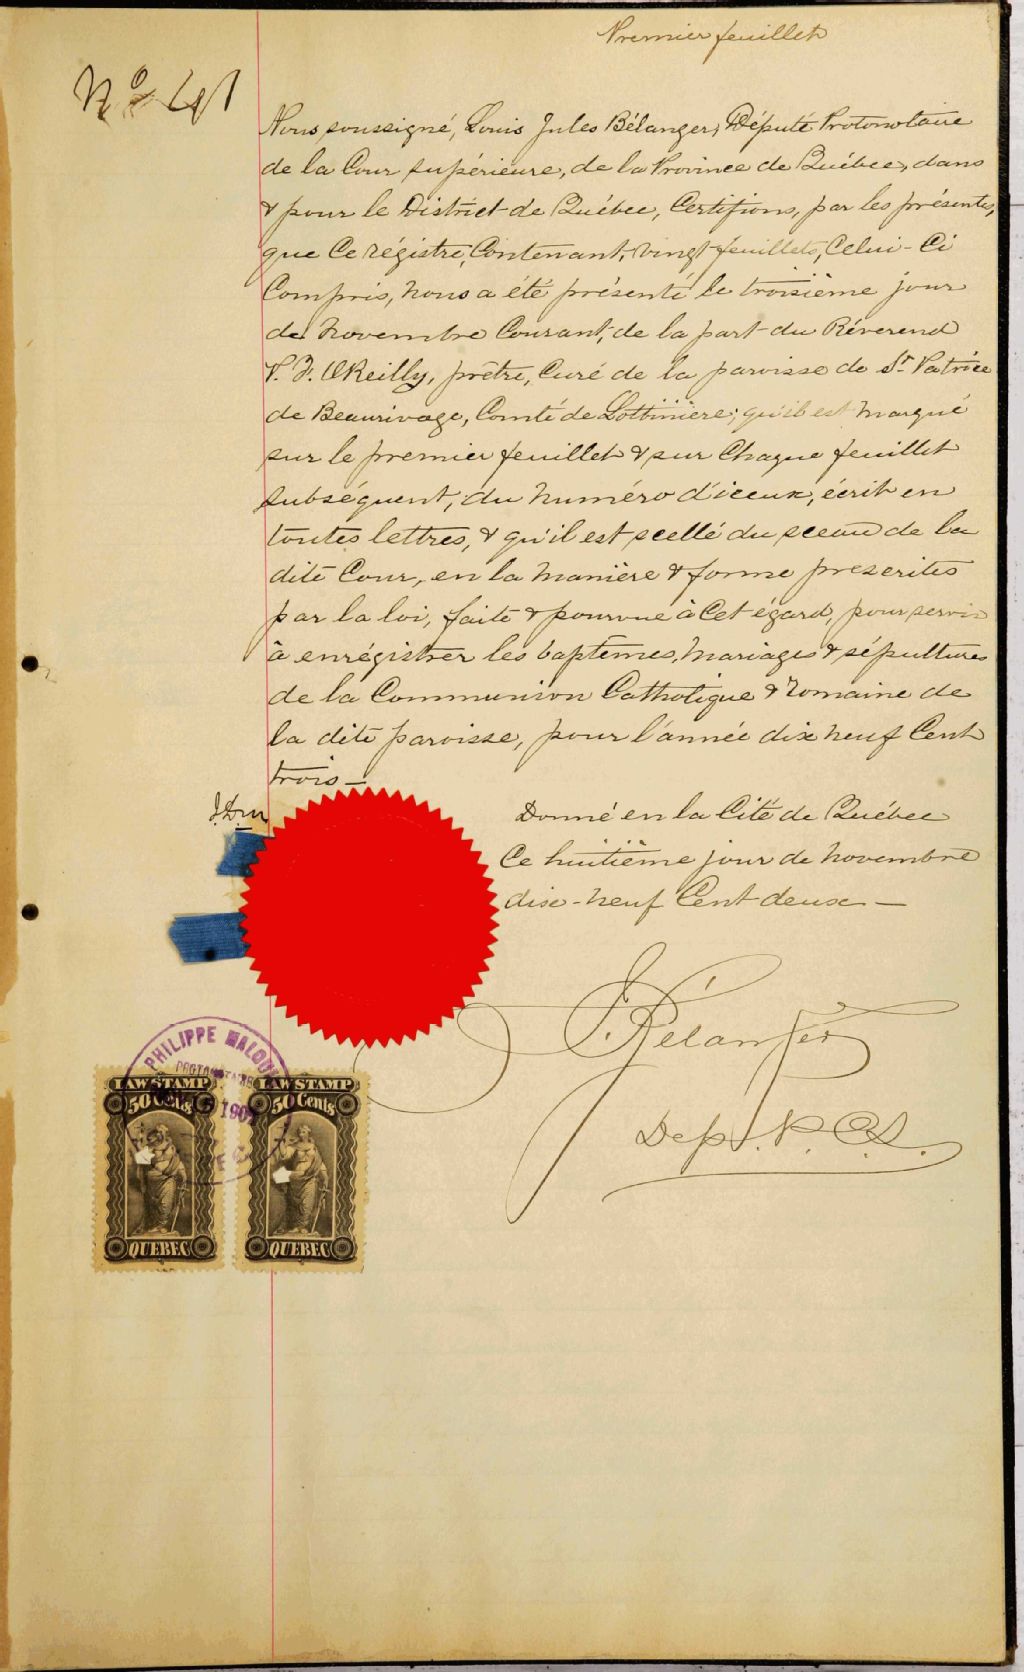 Premier feuillet
No 41
Nous, soussigné, Louis Jules Bélanger, Député Protonotaire
de la Cour supérieure, de la Province de Québec, dans
& pour le District de Québec, Certifions, par les présentes,
que Ce régistre, Contenant, vingt feuillets, Celui-Ci
Compris, nous a été présenté le troisième jour
de novembre Courant, de la part du Révérend
P. F. OReilly, prêtre, Curé de la paroisse de St Patrice
de Beaurivage, Comté de Lotbinière; qu'il est marqué
sur le premier feuillet & sur Chaque feuillet
subséquent, du numéro d'iceux, écrit en
toutes lettres, & qu'il est scellé du sceau de la
dite Cour, en la manière & forme prescrites
par la loi, faite & pourvue à Cet égard, pour servir
à enrégistrer les baptêmes, mariages & sépultures
de la Communion Catholique & romaine de
la dite paroisse, pour l'année dix neuf Cent
trois —
Donné en la Cité de Québec
Ce huitième jour de novembre
dix-neuf Cent deux —
J. Bélanger
Dep. P. C. S.
PHILIPPE MALOUIN
PROTONOTAIRE
LAW STAMP
50 Cents
QUEBEC
LAW STAMP
50 Cents
QUEBEC